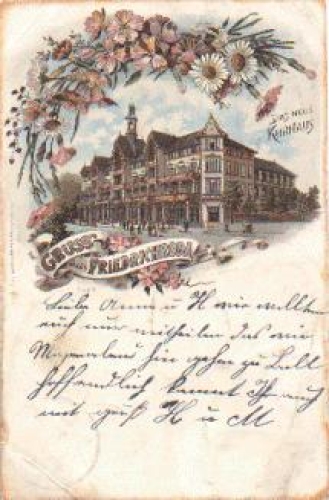 DAS NEUE
KURHAUS
GRUSS
AUS FRIEDRICHRODA
Liebe Anna u H wir wollten
euch nur mitheilen das wir
hin gehen zu Ball
hoffendlich kommt Ihr auch
mit gruß H u M